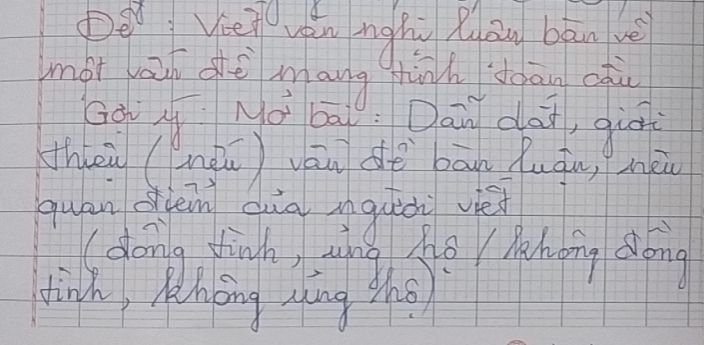 Đề: Viết văn nghị luận bàn về
một vấn đề mang tính toàn cầu
Gợi ý: Mở bài: Dẫn dắt, giới
thiệu (nêu) vấn đề bàn luận, nêu
quan điểm của người viết
(đồng tình, ủng hộ / không đồng
tình, không ủng hộ)